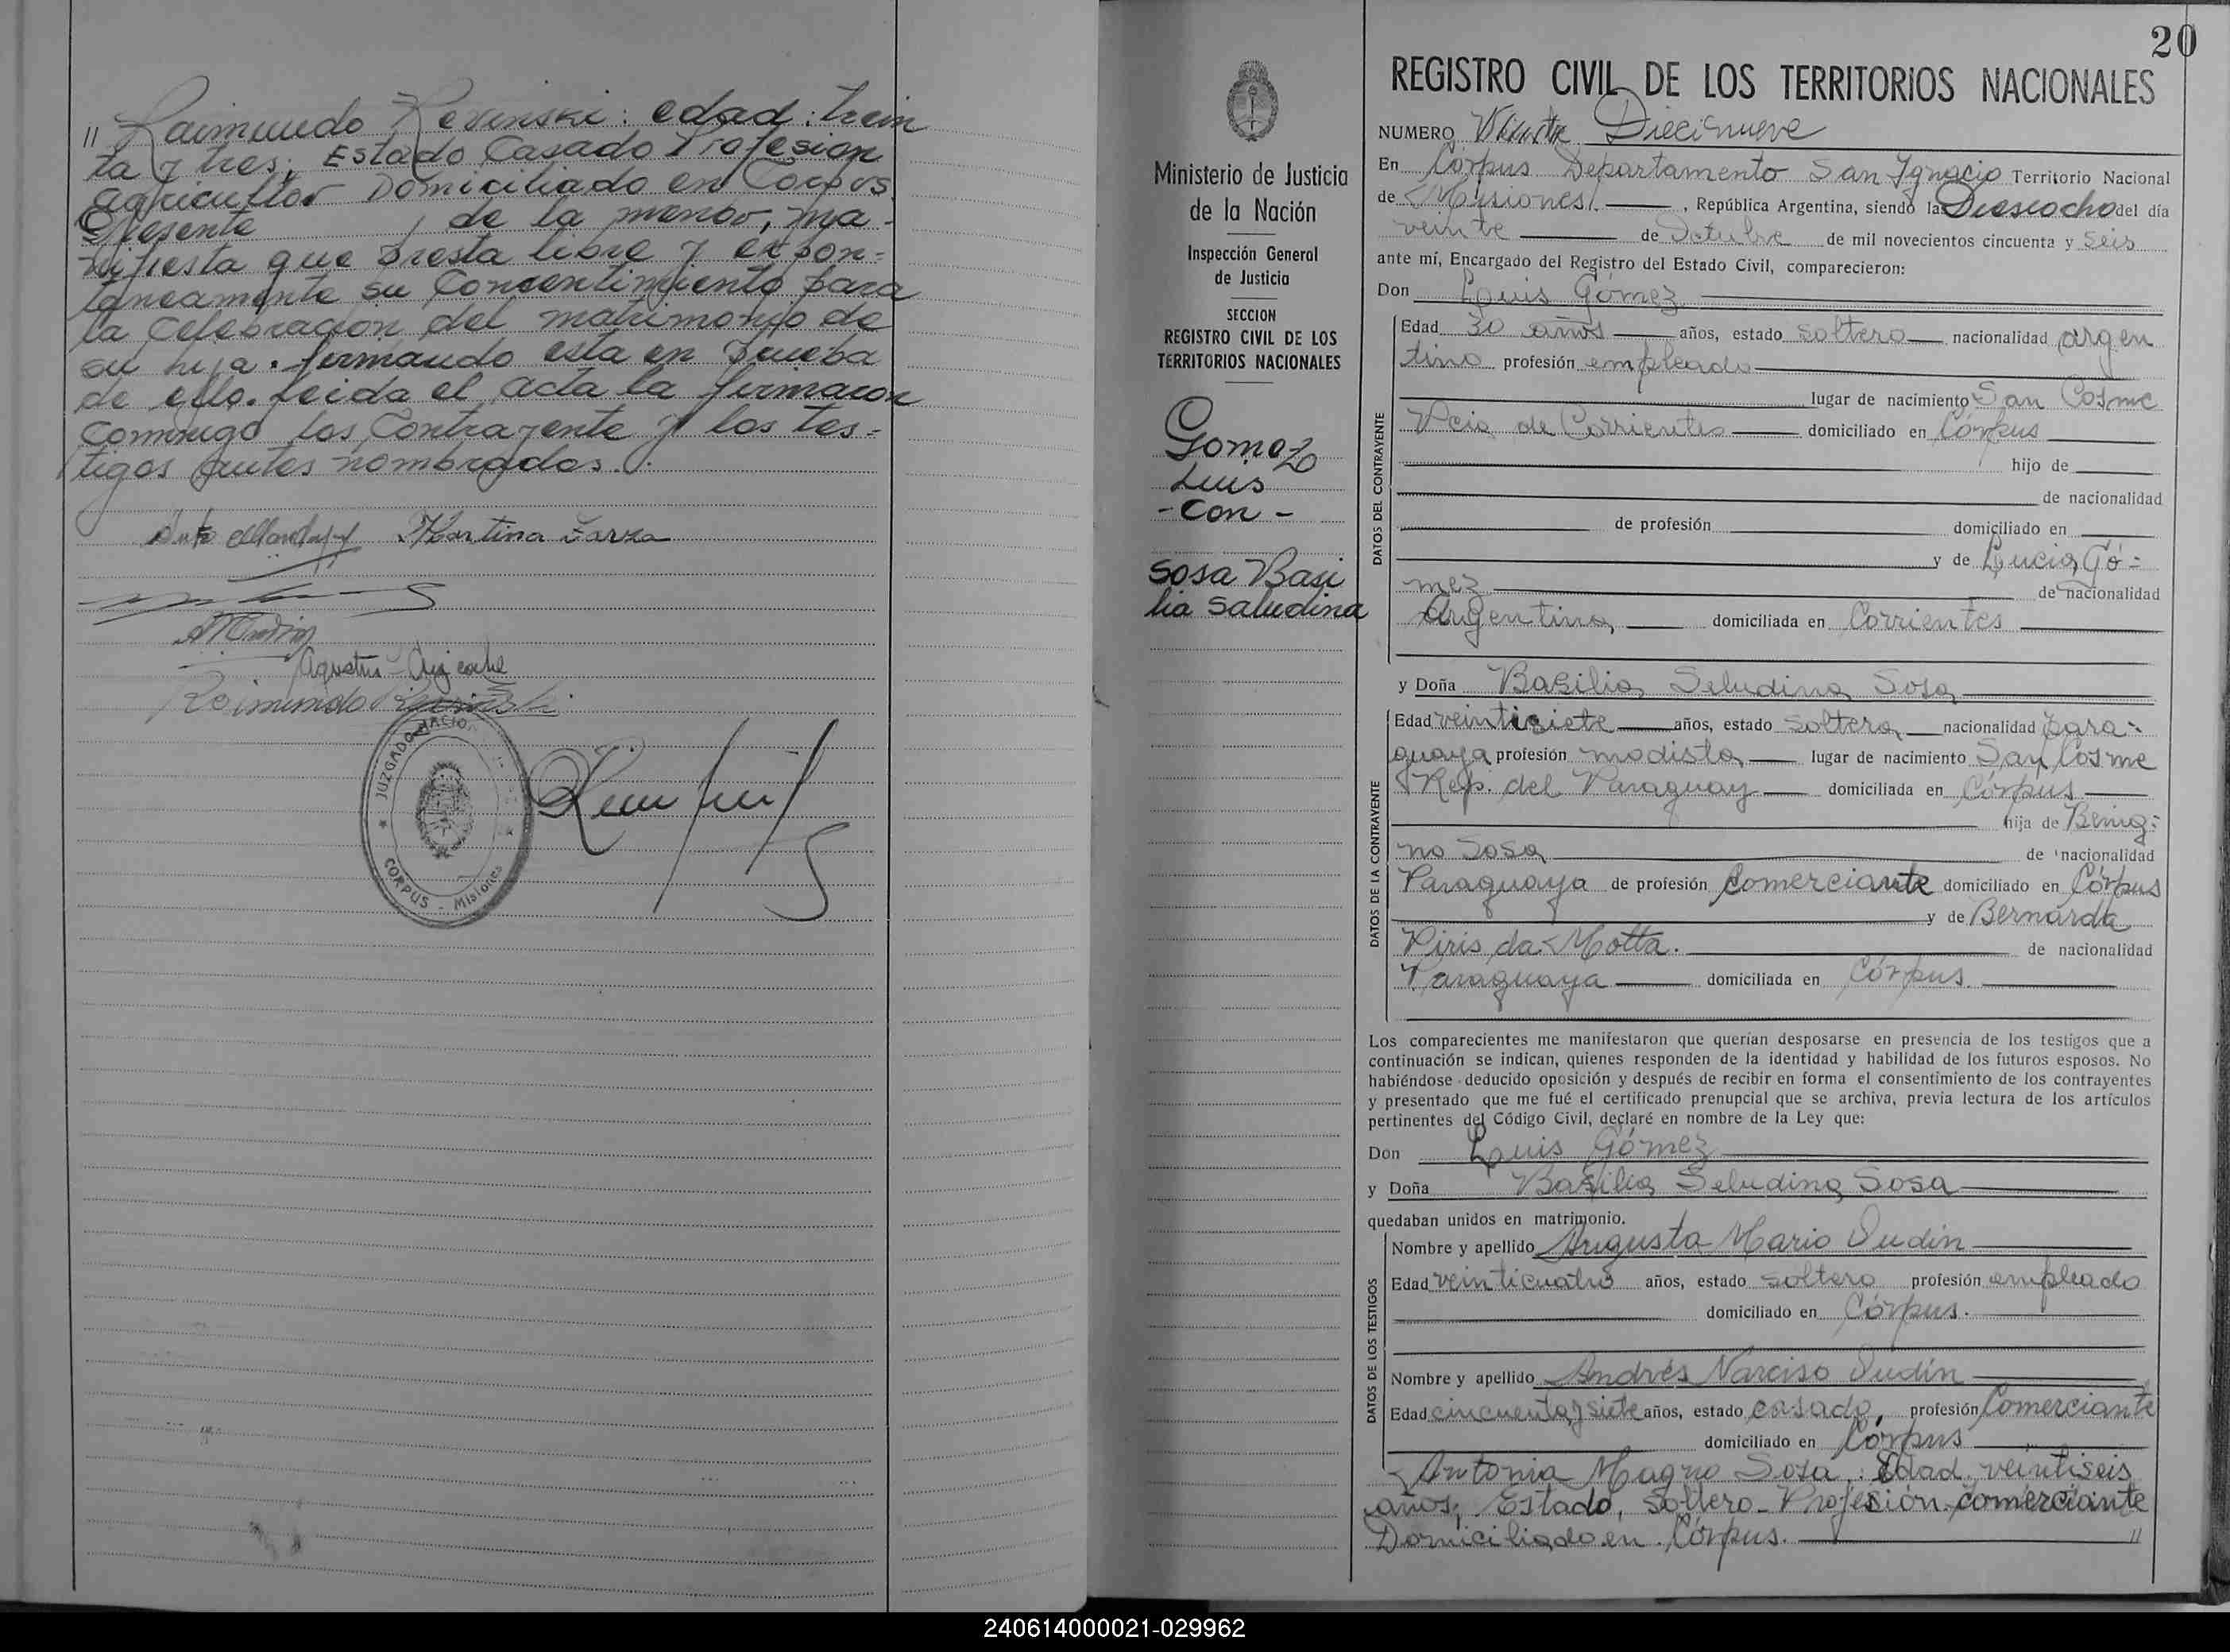 " Raimundo Kesinski: edad: trein
ta y tres; Estado Casado Profesion
agricultor Domiciliado en Corpus
Presente de la menor, ma-
nifiesta que presta libre y expon=
taneamente su Concentimiento para
la celebracion del matrimonio de
su hija. firmando esta en prueba
de ello. Leida el acta la firmaron
conmigo los Contrayente y los tes=
tigos antes nombrados.
Martina Zarza
Raimundo
JUZGADO
CORPUS - Misiones
20
REGISTRO CIVIL DE LOS TERRITORIOS NACIONALES
Ministerio de Justicia
de la Nación
Inspección General
de Justicia
SECCION
REGISTRO CIVIL DE LOS
TERRITORIOS NACIONALES
Gomez
Luis
- Con -
Sosa Basi
lia Saludina
NUMERO Diecinueve
En Córpus Departamento San Ygnacio Territorio Nacional
de Misiones. , República Argentina, siendo las Diesiocho del día
veinte de Octubre de mil novecientos cincuenta y seis
ante mí, Encargado del Registro del Estado Civil, comparecieron:
Don Luis Gómez
DATOS DEL CONTRAYENTE
Edad 30 años años, estado soltero nacionalidad argen
tino profesión empleado
lugar de nacimiento San Cosme
Pcia de Corrientes domiciliado en Córpus
hijo de
de nacionalidad
de profesión domiciliado en
y de Lucia Gó=
mez de nacionalidad
Argentina domiciliada en Corrientes
y Doña Basilia Seludina Sosa
DATOS DE LA CONTRAYENTE
Edad veintisiete años, estado soltera nacionalidad para=
guaya profesión modista lugar de nacimiento San Cosme
Rep. del Paraguay domiciliada en Córpus
hija de Benig=
no Sosa de nacionalidad
Paraguaya de profesión Comerciante domiciliado en Córpus
y de Bernarda
Piris da Motta. de nacionalidad
Paraguaya domiciliada en Córpus.
Los comparecientes me manifestaron que querían desposarse en presencia de los testigos que a
continuación se indican, quienes responden de la identidad y habilidad de los futuros esposos. No
habiéndose deducido oposición y después de recibir en forma el consentimiento de los contrayentes
y presentado que me fué el certificado prenupcial que se archiva, previa lectura de los artículos
pertinentes del Código Civil, declaré en nombre de la Ley que:
Don Luis Gómez
y Doña Basilia Seludina Sosa
quedaban unidos en matrimonio.
DATOS DE LOS TESTIGOS
Nombre y apellido Augusto Mario Dudin
Edad veinticuatro años, estado soltero profesión empleado
domiciliado en Córpus.
Nombre y apellido Andrés Narciso Dudín
Edad cincuenta y siete años, estado casado, profesión Comerciante
domiciliado en Córpus
Antonia Magno Sosa. Edad veintiseis
años; Estado, Soltero- Profesión-comerciante
Domiciliado en Córpus. "
240614000021-029962